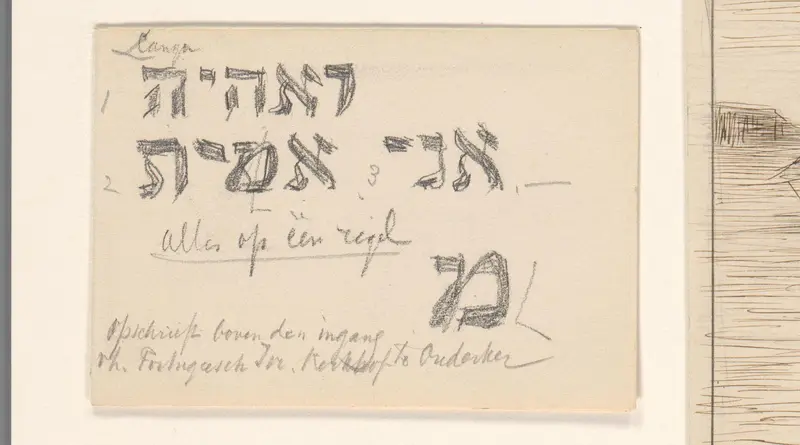 1 ואהיה
2 אמית 3 אני
alles op ëen regel
מ
opschrift boven den ingang
Portugeesch Isr. Kerkhof te Ouderker